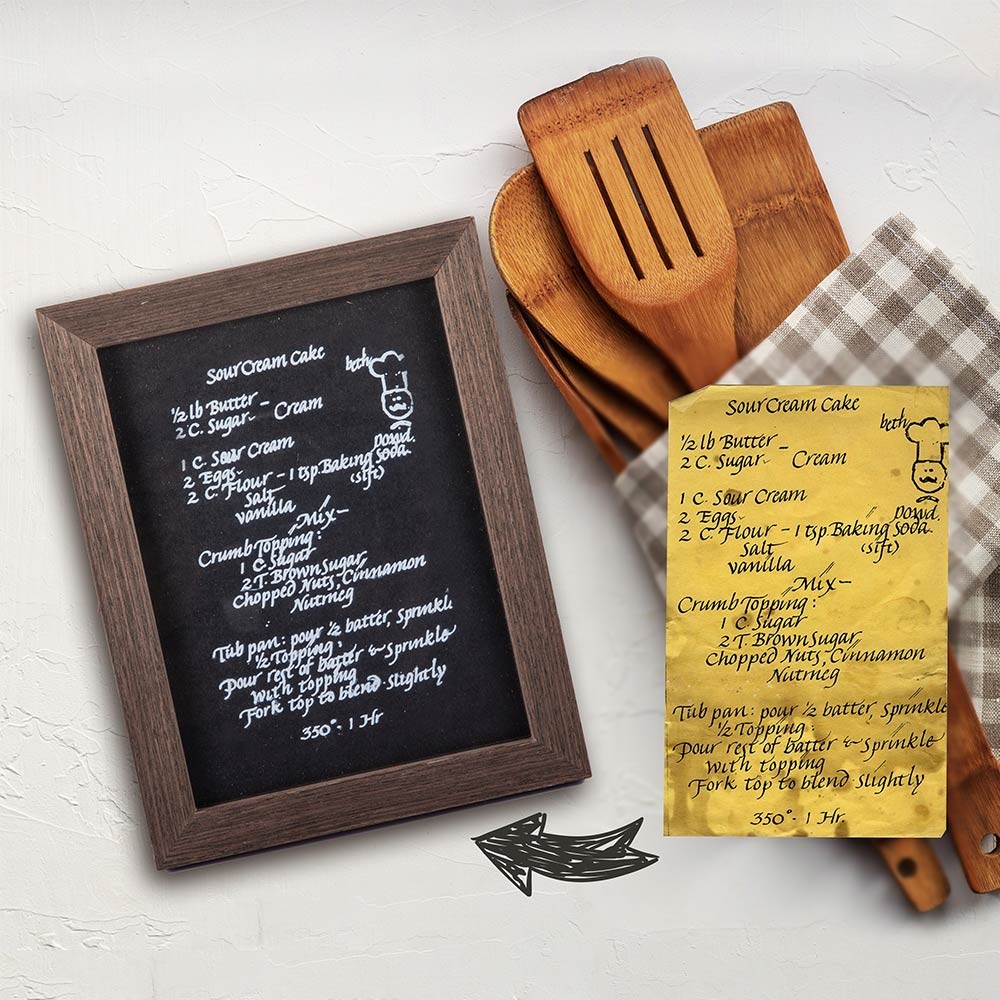 Sour Cream Cake
beth
½ lb Butter –
2 C. Sugar – Cream
1 C. Sour Cream
2 Eggs
powd.
2 C. Flour – 1 tsp. Baking Soda
Salt (sift)
vanilla
Mix –
Crumb Topping:
1 C. Sugar
2 T. Brown Sugar
Chopped Nuts, Cinnamon
Nutmeg
Tub pan: pour ½ batter, Sprinkl
½ Topping:
Pour rest of batter & Sprinkle
with topping
Fork top to blend slightly
350° - 1 Hr
Sour Cream Cake
beth
½ lb Butter –
2 C. Sugar – Cream
1 C. Sour Cream
2 Eggs
powd.
2 C. Flour – 1 tsp. Baking Soda
Salt (sift)
vanilla
Mix –
Crumb Topping:
1 C. Sugar
2 T. Brown Sugar
Chopped Nuts, Cinnamon
Nutmeg
Tub pan: pour ½ batter, Sprinkle
½ Topping:
Pour rest of batter & Sprinkle
with topping
Fork top to blend slightly
350° - 1 Hr.